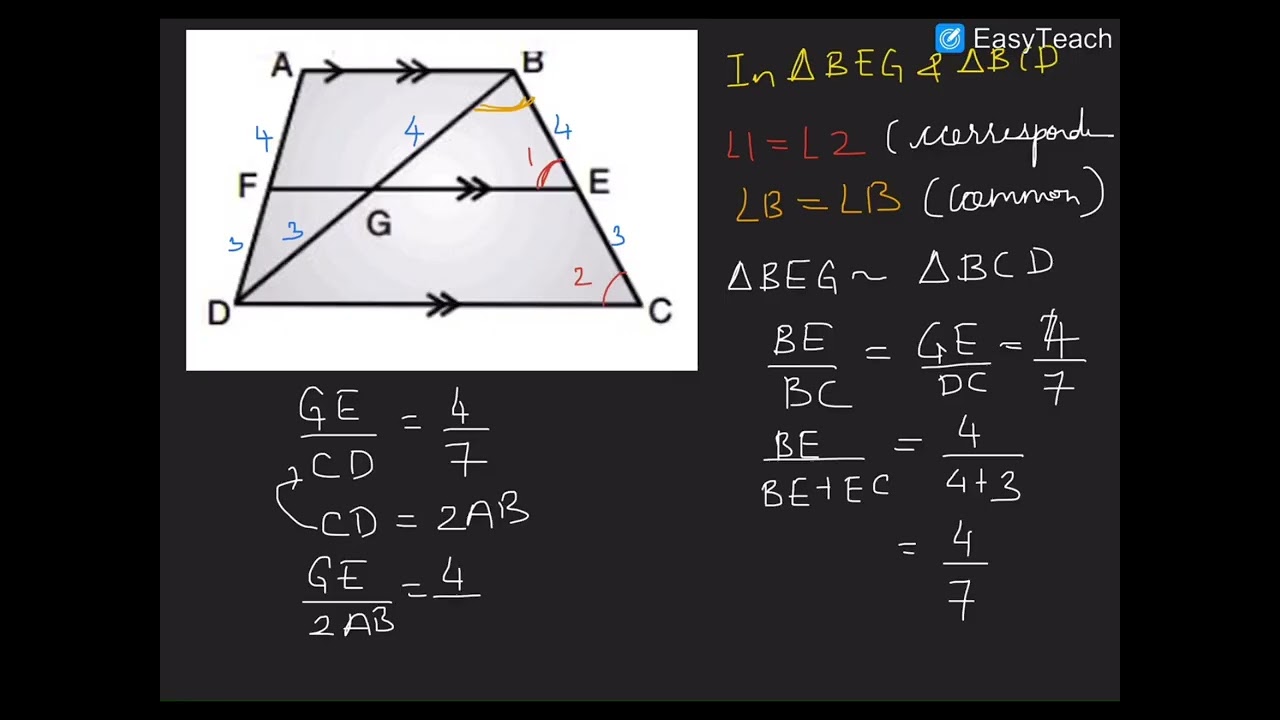 EasyTeach
A B
4 4 4
1
F E
G
3 3 3
2
D C
In ΔBEG & ΔBCD
∠1 = ∠2 (corresponde
∠B = ∠B (common)
ΔBEG ~ ΔBCD
BE/BC = GE/DC = 4/7
BE/BE+EC = 4/4+3
= 4/7
GE/CD = 4/7
CD = 2AB
GE/2AB = 4/